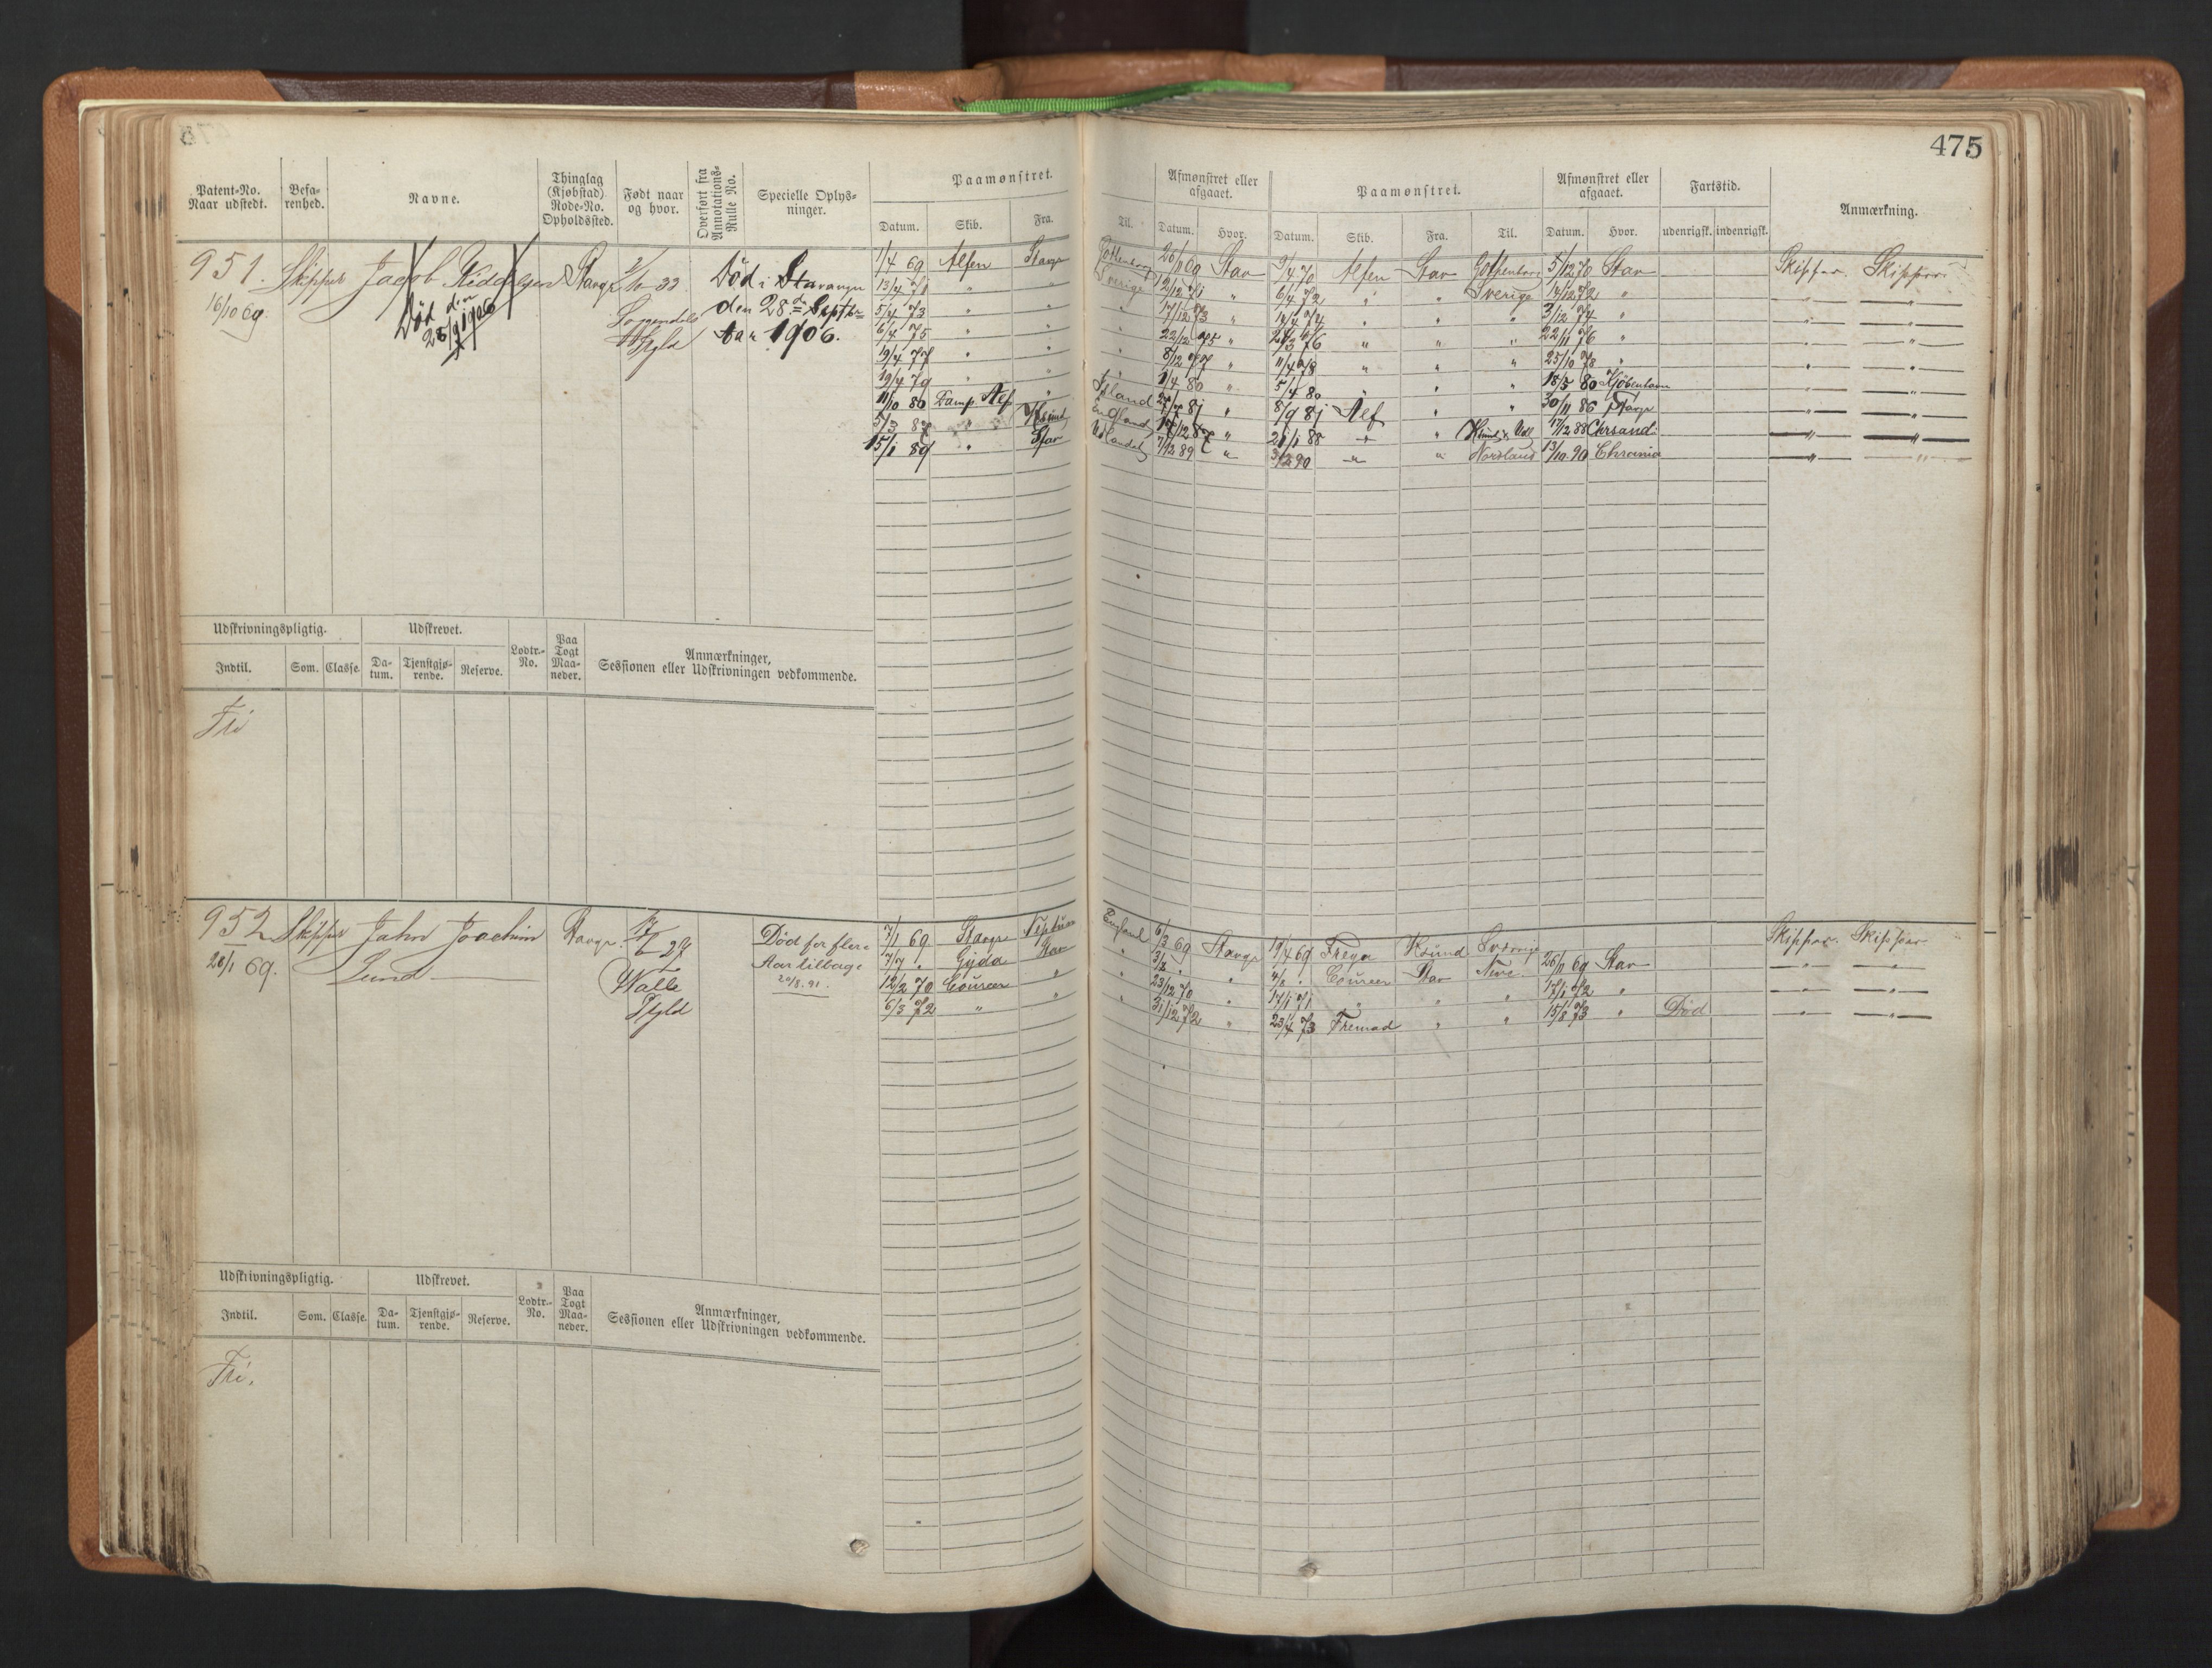 475
Patent-No. Naar udstedt. Befa-renhed. Navne. Thinglag (Kjøbstad). Rode-No. Opholdssted. Født naar og hvor. Overført fra Annotations-Rulle No. Specielle Oplys-ninger. Paamønstret. Afmønstret eller afgaaet. Paamønstret. Afmønstret eller afgaaet. Fartstid. Anmærkning.
Datum. Skib. Fra. Til. Datum. Hvor. Datum. Skib. Fra. Til. Datum. Hvor. udenrigsk. indenrigsk.
951. Skipper Jacob Stavgr 33 Død i Stavanger
16/10 69 Død den 28/9 1906 Soggendals den 28de Septbr
Hfgld Aar 1906.
1/4 69 Alfen Stavgr Gottenborg 26/11 69 Stav 9/4 70 Alfen Stav Gottenborg 5/12 70 Stav Skipper. Skipper
13/4 71 " " Sverige 12/12 71 " 6/4 72 " " Sverige 14/12 72 " " "
5/4 73 " " " 17/12 73 " 14/4 74 " " " 3/12 74 " " "
6/4 75 " " " 22/12 75 " 24/3 76 " " " 22/11 76 " " "
19/4 77 " " " 8/12 77 " 11/4 78 " " " 25/10 78 " " "
19/4 79 " " " 1/4 80 " 5/4 80 " " " 18/5 80 Kjöbenhavn " "
11/10 80 Damp. Alf " Island 81 " 8/9 81 Alf " " 30/11 86 Stavgr " "
5/3 87 " Ksund England 12 87 " 21/1 88 " " Ksund & Udl 17/12 88 Chrsand. " "
15/1 89 " Stav Udlandet 7/12 89 " 3/2 90 " " Nordland 13/10 90 Chrania " "
Udskrivningspligtig. Udskrevet. Lodtr.-No. Paa Togt Maa-neder. Anmærkninger, Sessionen eller Udskrivningen vedkommende.
Indtil. Som. Classe. Da-tum. Tjenstgjø-rende. Reserve.
Fri
952 Skipper Jahn Joachim Stavgr. 27 Død for flere
28/1 69. Lund Walle Aar tilbage
Hfgld 24/8. 91.
7/1 69 Stavgr Neptun England 6/3 69 Stavgr 19/4 69 Freya Ksund Sverrige Skipper. Skipper
7/7 " Gyda Stav " 3/8 " " 4/8 " Coureer Stav 26/11 69 Stav " "
12/2 70 Coureer " " 23/12 70 " 17/1 71 " " " 17/1 72 " " "
6/3 72 " " " 31/12 72 " 23/4 73 Fremad " " 15/8 73 " Død " "
Udskrivningspligtig. Udskrevet. Lodtr.-No. Paa Togt Maa-neder. Anmærkninger, Sessionen eller Udskrivningen vedkommende.
Indtil. Som. Classe. Da-tum. Tjenstgjø-rende. Reserve.
Fri.